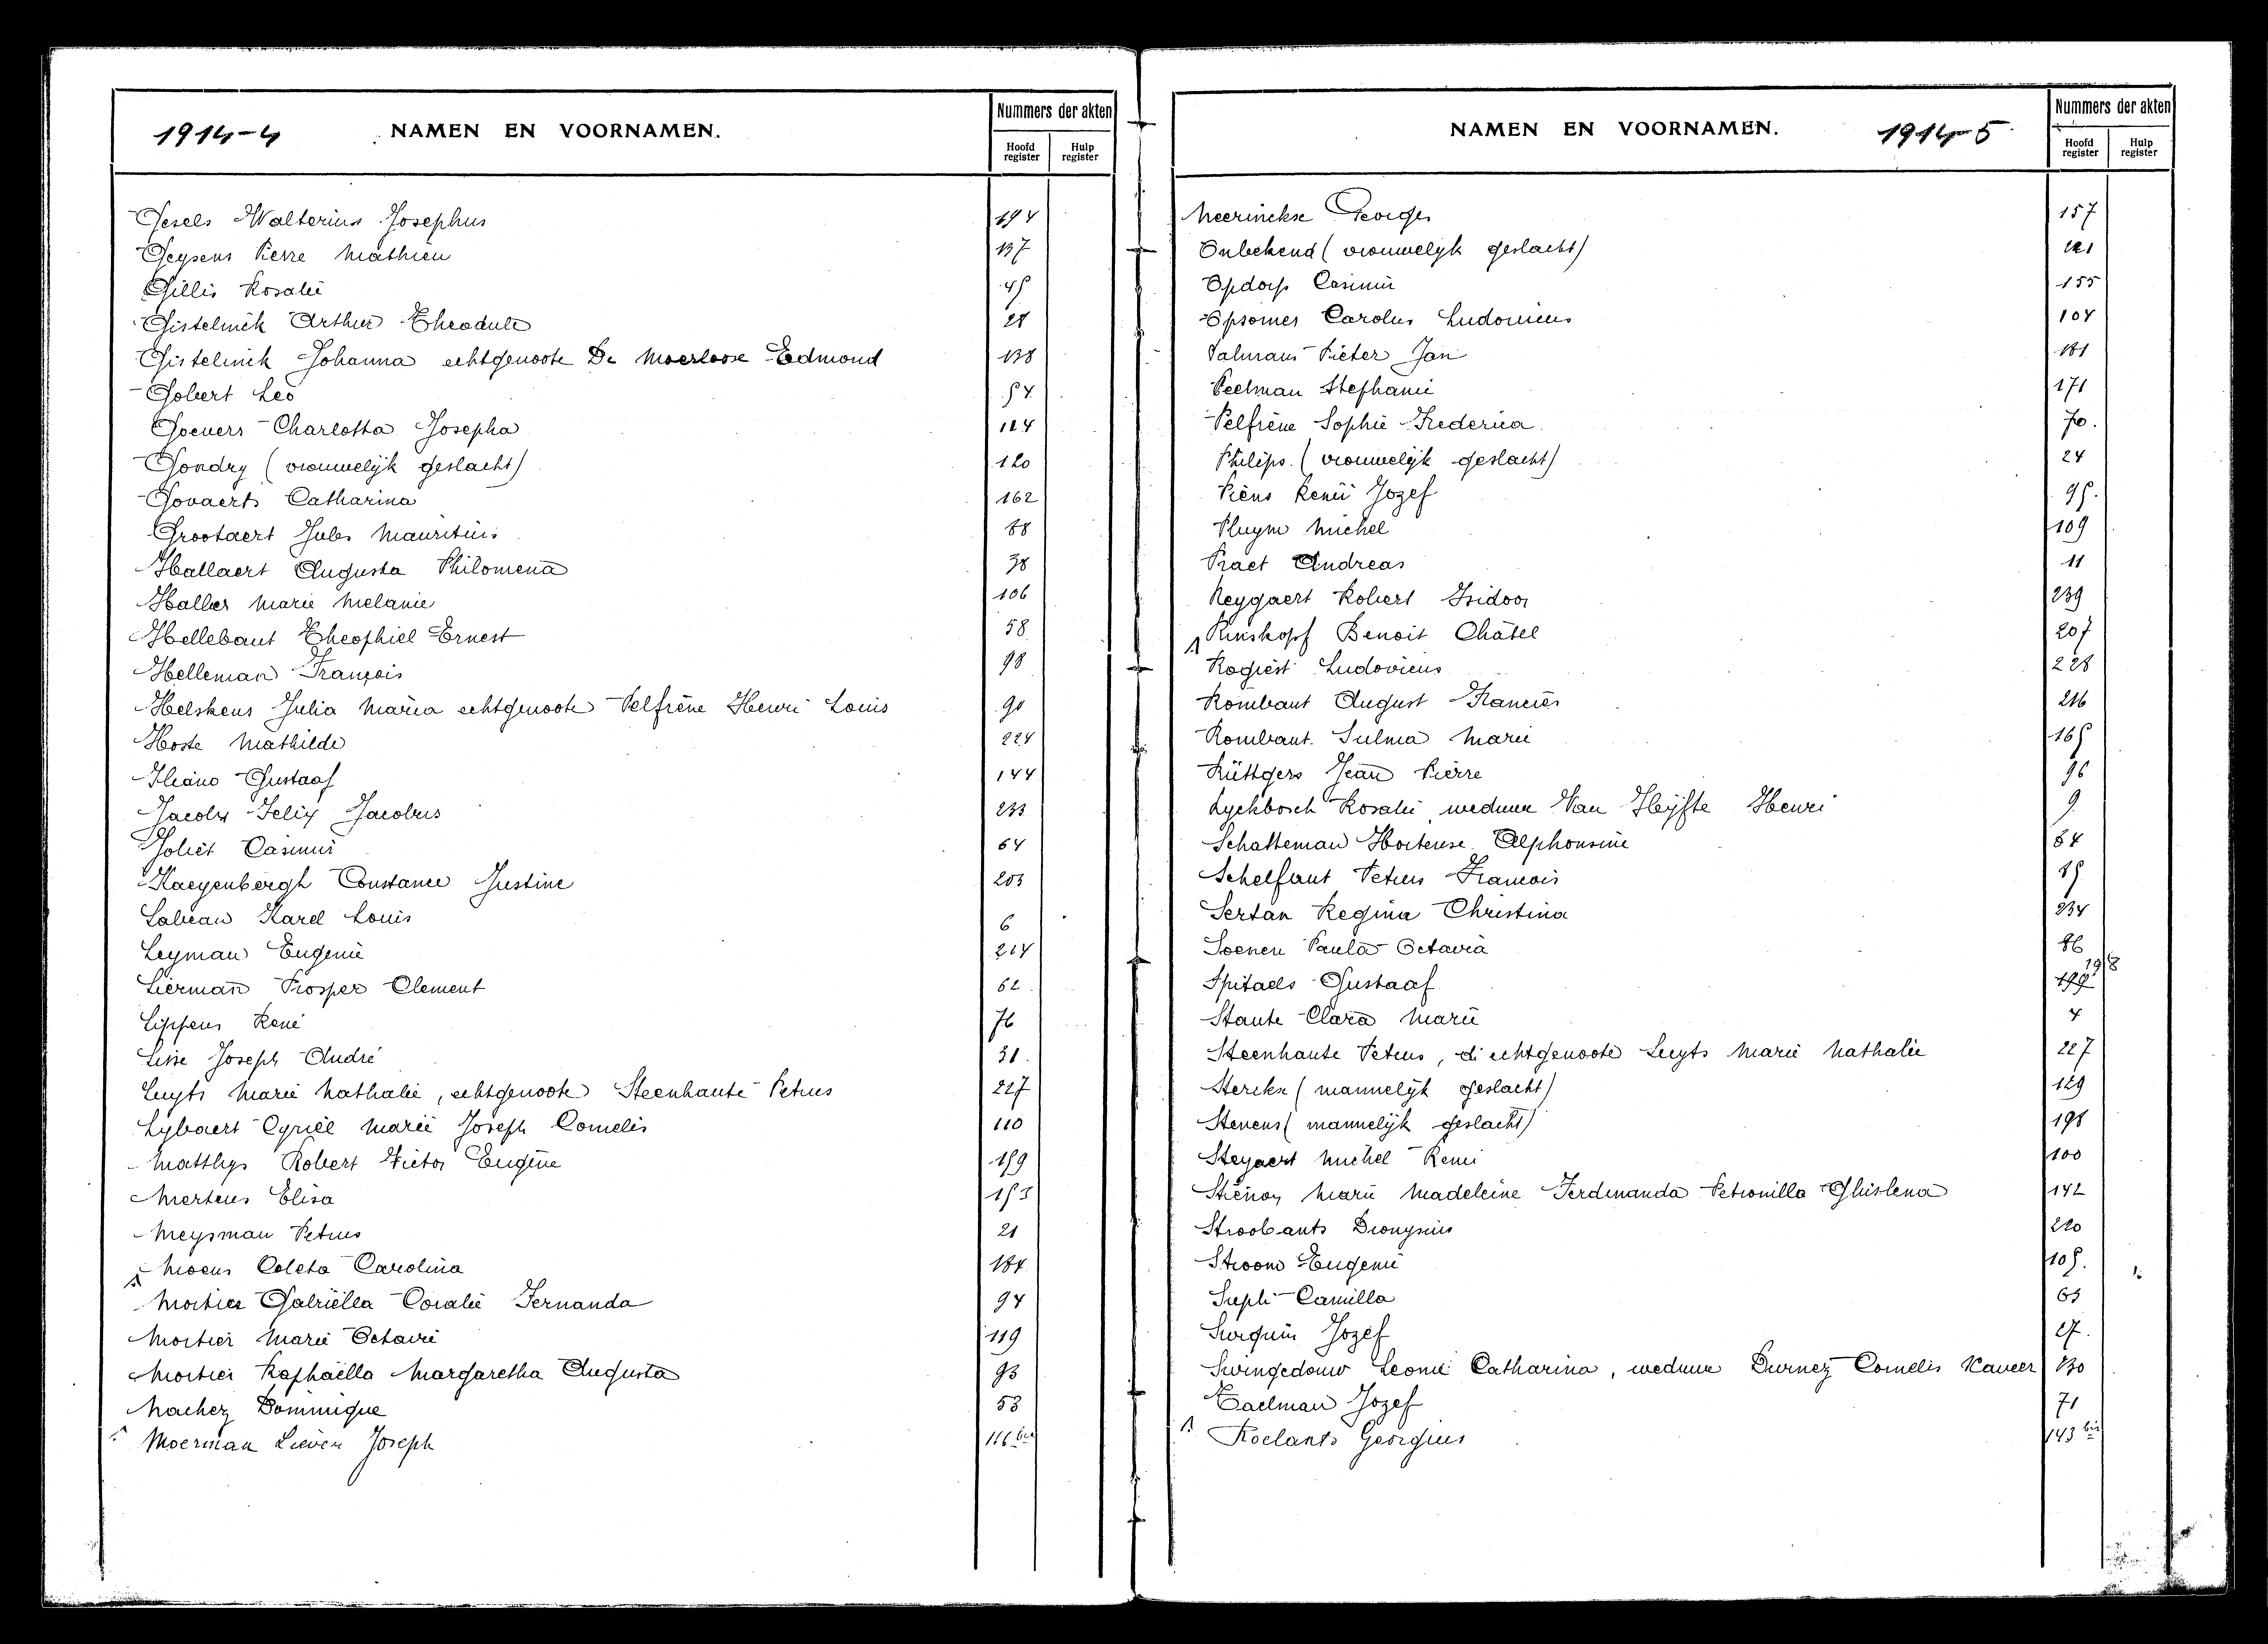 1914-4 NAMEN EN VOORNAMEN.
Nummers der akten
Hoofd register Hulp register
Gesels Walterius Josephus 194
Geysens Pierre Mathieu 137
Gillis Rosalie 45
Gistelinck Arthur Theodule 28
Gistelinck Johanna echtgenoote De Moerloose Edmond 138
Gobert Leo 54
Goeuers Charlotta Josepha 124
Gondry (vrouwelijk geslacht) 120
Govaerts Catharina 162
Grootaert Jules Mauritius 68
Hallaert Augusta Philomena 38
Haller Marie Melanie 106
Hellebaut Theophiel Ernest 58
Helleman François 98
Helskens Julia Maria echtgenoote Pelfrène Henri Louis 90
Hoste Mathilde 224
Iliano Gustaaf 144
Jacobs Felix Jacobus 233
Joliet Casimir 64
Kaeyenbergh Constance Justine 203
Labeau Karel Louis 6
Leyman Eugenie 214
Lierman Prosper Clement 62
Lippens René 76
Lisse Joseph André 31
Luyts Marie Nathalie, echtgenoote Steenhaute Petrus 227
Lybaert Cyriel Marie Joseph Cornelis 110
Matthys Robert Victor Eugène 159
Mertens Elisa 153
Meysman Petrus 21
Moens Coleta Carolina 184
Mortier Gabriëlla Coralie Fernanda 94
Mortier Marie Octavie 119
Mortier Raphaëlla Margaretha Augusta 93
Nachez Dominique 53
Moerman Lieven Joseph 116 bis
NAMEN EN VOORNAMEN. 1914-5
Nummers der akten
Hoofd register Hulp register
Neerinckse Georges 157
Onbekend (vrouwelyk geslacht) 121
Opdorp Casimir 155
Opsomer Carolus Ludovicus 104
Palmans Pieter Jan 181
Peelman Stephanie 171
Pelfrène Sophie Frederica 70.
Philips. (vrouwelijk geslacht) 24
Piens Remi Jozef 95.
Pluym Michel 109
Praet Andreas 11
Reygaert Robert Isidoor 239
Rinskopf Benoit Châtel 207
Rogiest Ludovicus 228
Rombaut August Francies 216
Rombaut Sulma Marie 165
Rüttgers Jean Pierre 96
Ryckbosch Rosalie, weduwe Van Hyfte Henri 9
Schatteman Hortense Alphonsine 84
Schelfaut Petrus Francois 85
Sertan Regina Christina 234
Soenen Paula Octavia 86
Spitaels Gustaaf 198
Staute Clara Marie 4
Steenhaute Petrus, di echtgenoote Luyts Marie Nathalie 227
Sterckx (mannelijk geslacht) 129
Stevens (mannelijk geslacht) 198
Steyaert Michel Remi 100
Stiénon Marie Madeleine Ferdinanda Petronilla Ghislena 142
Stroobants Dionysius 220
Stroom Eugenie 105.
Supli Camilla 65
Surquin Jozef 27.
Swingedouw Leonie Catharina, weduwe Durnez Cornelis Xaveer 130
Taelman Jozef 71
Roelants Georgius 143 bis